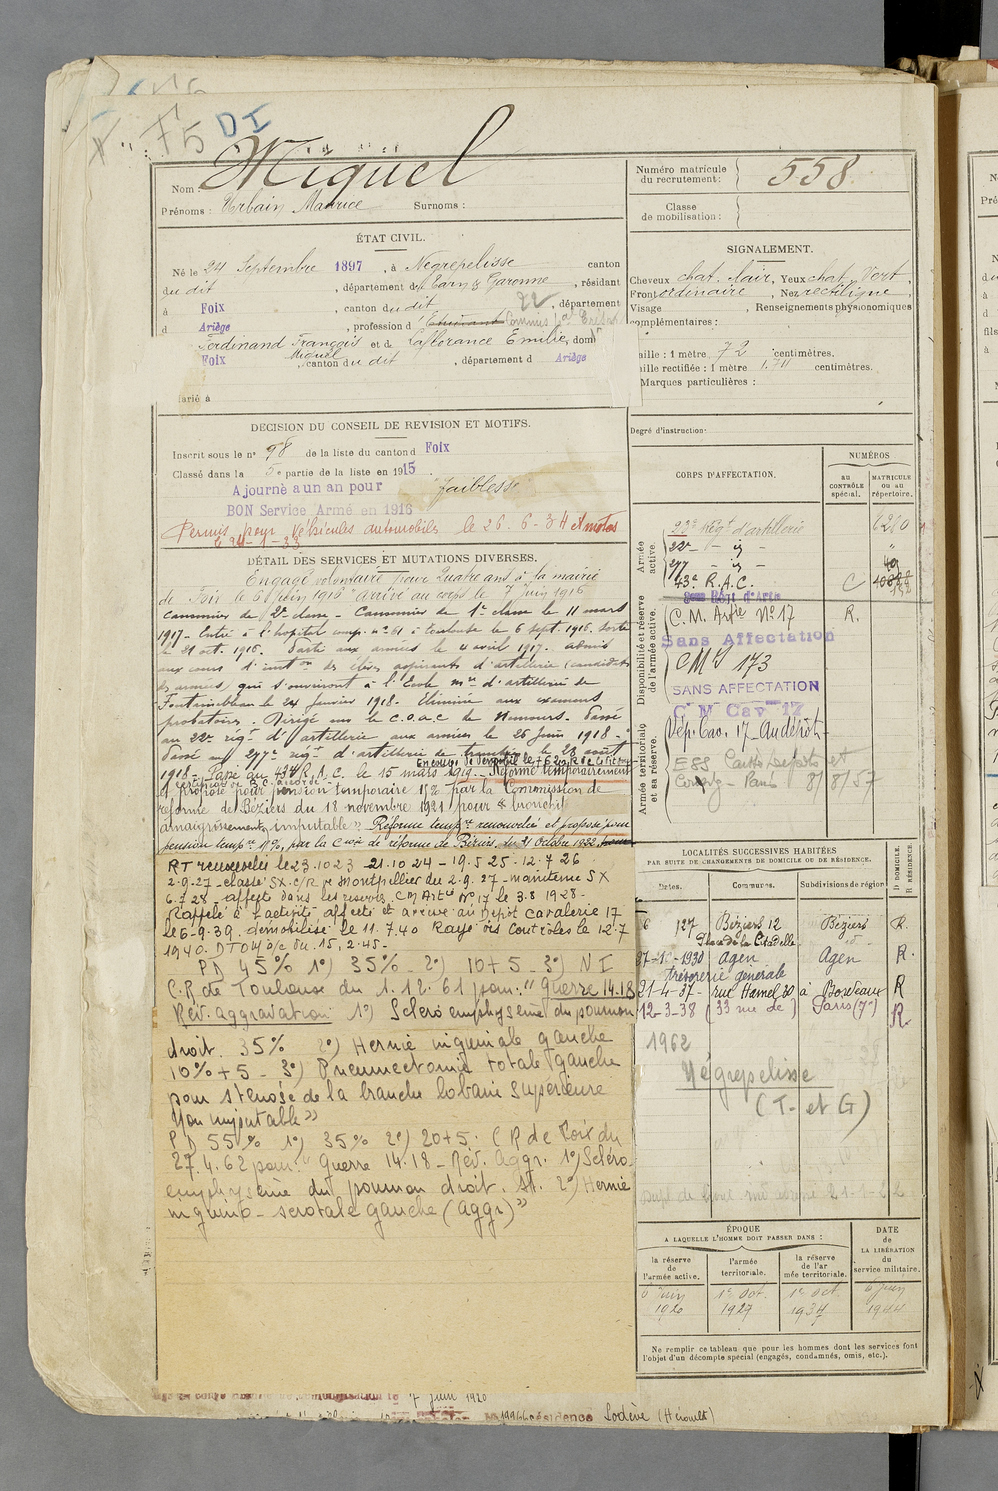 F5 DI
Nom : Miquel
Prénoms : Urbain Maurice Surnoms :
Numéro matricule du recrutement : 558
Classe de mobilisation :
ÉTAT CIVIL.
Né le 24 Septembre 1897, à Négrepelisse canton
du dit, département de Tarn & Garonne, résidant
à Foix, canton du dit, département
d Ariège, profession d' Etudiant Commis
Ferdinand François et de Laflorance Emilie, dom
Miquel
Foix, canton du dit, département d Ariège
arié à
SIGNALEMENT.
Cheveux chat. clair, Yeux chat. Vert,
Front ordinaire, Nez rectiligne,
Visage , Renseignements physionomiques
complémentaires :
aille : 1 mètre 72 centimètres.
ille rectifiée : 1 mètre 1,74 centimètres.
Marques particulières :
Degré d'instruction:
DECISION DU CONSEIL DE REVISION ET MOTIFS.
Inscrit sous le n° 98 de la liste du canton d Foix
Classé dans la 5e partie de la liste en 1915.
Ajourné a un an pour faiblesse
BON Service Armé en 1916
Permis pour véhicules automobiles le 26-6-34 et motos
le 24-1-33
DÉTAIL DES SERVICES ET MUTATIONS DIVERSES.
Engagé volontaire pour quatre ans à la mairie
de Foix le 6 juin 1916 arrivé au corps le 7 juin 1916
canonnier de 2e classe - Canonnier de 1e classe le 11 mars
1917 - Entré à l'hopital comp. n° 61 à Toulouse le 6 sept. 1916. Sorti
le 21 oct. 1916. Parti aux armées le 4 avril 1917. admis
aux cours d'inston des élèves aspirants d'artillerie (candidats
des armées) qui s'ouvriront à l'Ecole mre d'artillerie de
Fontainebleau le 24 janvier 1918. Eliminé aux examens
probatoires. Dirigé sur le C.O.A.C de Nemours. Passé
au 22e régt d'artillerie aux armées le 26 Juin 1918 -
Passé au 277e régt d'artillerie de le 28 août
1918 - Passé au 43e R.A.C. le 15 mars 1919 - Réformé temporairement
et proposé pour pension temporaire 15% par la Commission de
réforme de Béziers du 18 novembre 1921 pour &
amaigrissement, imputable" Réforme tempre renouvelée et proposé pour
pension tempre 10%, par la Cion de réforme de Béziers, du 21 Octobre 1922
RT renouvelée le 23.10 23 - 21.10 24 - 19.5 25 - 12.7 26
2.9.27 - classé SX. C/R de Montpellier du 2.9.27 - maintenu SX
6.7.28 - affecté dans les réserves CM Artie n° 17 le 3.8 1928 -
Rappelé à l'activité affecté et arrivé au Dépôt Cavalerie 17
le 6-9.39. démobilisé le 11.7.40 Rayé des Contrôles le 12.7
1940. du 15.2.45 -
PD 45% 1°) 35% - 2°) 10+5 - 3°) NI
C.R de Toulouse du 1.12.61 pour : "Guerre 14.18
Rév. aggravation 1°) Scléro emphysème du poumon
droit. 35% 2°) Hernie inguinale gauche
10% + 5 - 3°) Pneumectomie totale gauche
pour sténose de la branche lobaire supérieure
Non imputable"
PD 55% 1°) 35% 2°) 20+5. CR de Foix du
27.4.62 pour : "Guerre 14.18 - Rév. Aggr. 1°) Scléro-
emphysème du poumon droit. St. 2°) Hernie
inguino-scrotale gauche (aggr)"
CORPS D'AFFECTATION.
NUMÉROS
AU CONTRÔLE spécial.
MATRICULE ou au répertoire.
Armée active.
23e Régt d'artillerie 6260
22e - id -
277 - id -
43e R.A.C. C
Disponibilité et réserve de l'armée active.
C.M. Artie N° 17 R.
Sans Affectation
CMI 173
SANS AFFECTATION
C M Cav 17
Armée territoriale et sa réserve.
Dép. Cav. 17 - Au dépôt -
8/8/57
LOCALITÉS SUCCESSIVES HABITÉES
PAR SUITE DE CHANGEMENTS DE DOMICILE OU DE RÉSIDENCE.
Dates. Communes. Subdivisions de région D DOMICILE. R RÉSIDENCE.
127 Béziers 12 Béziers R.
Place de la Citadelle id -
27-10-1930 Agen Agen R.
trésorerie générale
21-4-37 - rue Hamel 30 à Bordeaux R
12-3-38 (33 rue de ) Paris (7e) R
1962
Négrepelisse
(T- et G)
ÉPOQUE
A LAQUELLE L'HOMME DOIT PASSER DANS :
la réserve de l'armée active.
l'armée territoriale.
la réserve de l'ar mée territoriale.
DATE de LA LIBÉRATION du service militaire.
6 juin 1920
1er Oct. 1927
1er Oct. 1934
6 juin 1944
Ne remplir ce tableau que pour les hommes dont les services font
l'objet d'un décompte spécial (engagés, condamnés, omis, etc.).
7 juin 1920
résidence Lodève (Hérault)